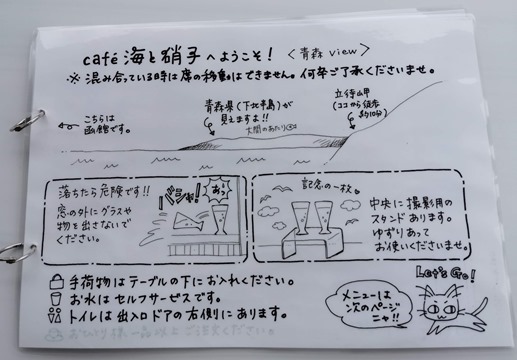 café 海と硝子へようこそ！〈青森 view〉
※ 混み合っている時は席の移動はできません。何卒ご了承くださいませ。
こちらは
函館です。
青森県（下北半島）が
見えますよ!!
大間のあたり
立待岬
（ココから徒歩
約10分）
落ちたら危険です!!
窓の外にグラスや
物を出さないで
ください。
バシャ!
あっ
記念の一枚
中央に撮影用の
スタンドあります。
ゆずりあって
お使いくださいませ。
手荷物はテーブルの下にお入れください。
お水はセルフサービスです。
トイレは出入口ドアの右側にあります。
お ひとり様、一品以上ご注文ください。
メニューは
次のページ
ニャ!!
Let's Go!